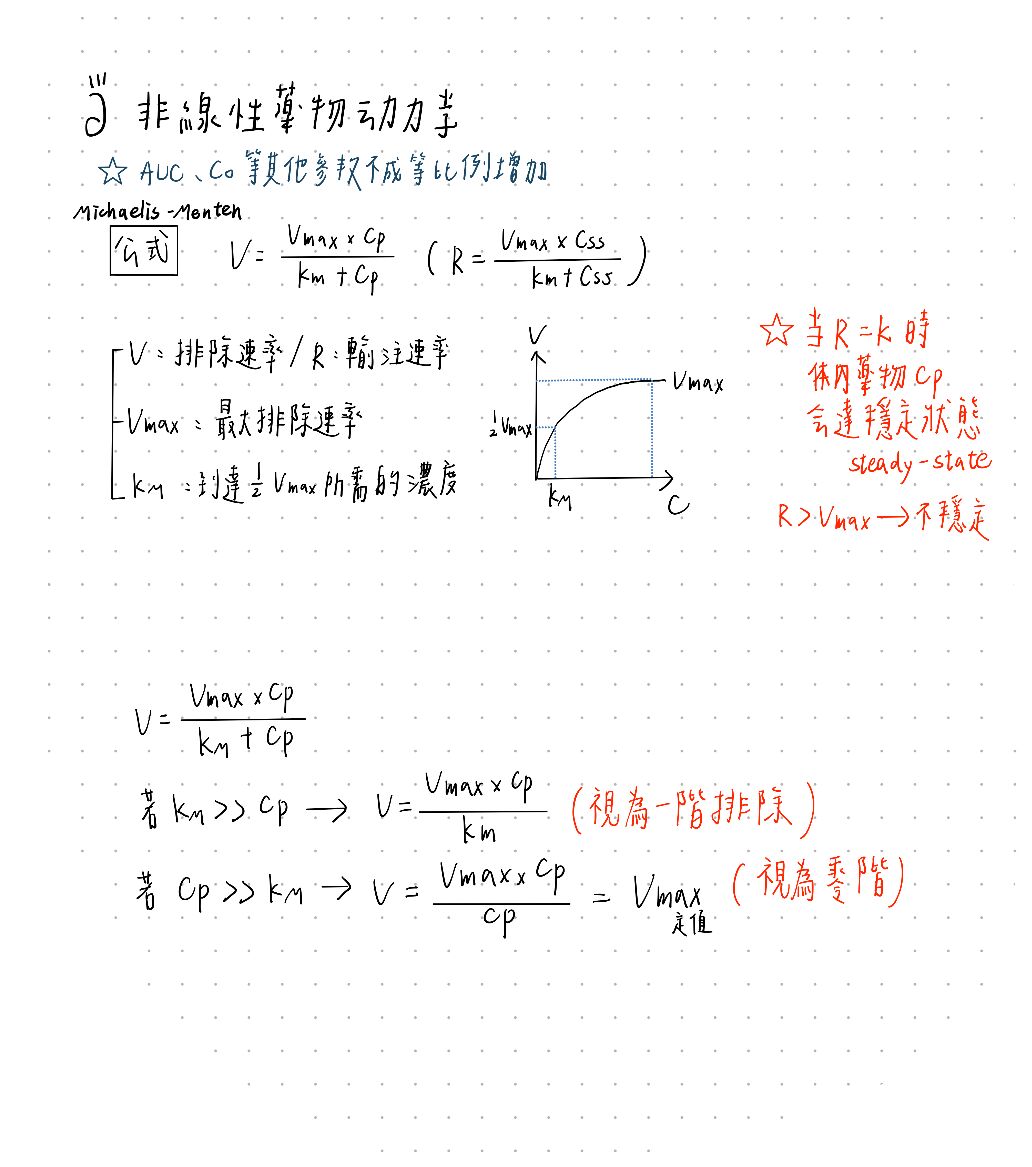 非線性藥物动力学
☆ AUC、Co 等其他參数不成等比例增加
Michaelis-Menten
公式 V = Vmax × Cp / km + Cp ( R = Vmax × Css / km + Css )
V：排除速率 / R：輸注速率
Vmax：最大排除速率
km：到達 1/2 Vmax 所需的濃度
V
Vmax
1/2 Vmax
km
C
☆ 当 R = k 時
体内藥物 Cp
会達穩定狀態
steady-state
R > Vmax → 不穩定
V = Vmax × Cp / km + Cp
若 km >> Cp → V = Vmax × Cp / km (視為一階排除)
若 Cp >> km → V = Vmax × Cp / Cp = Vmax (視為零階)
定值